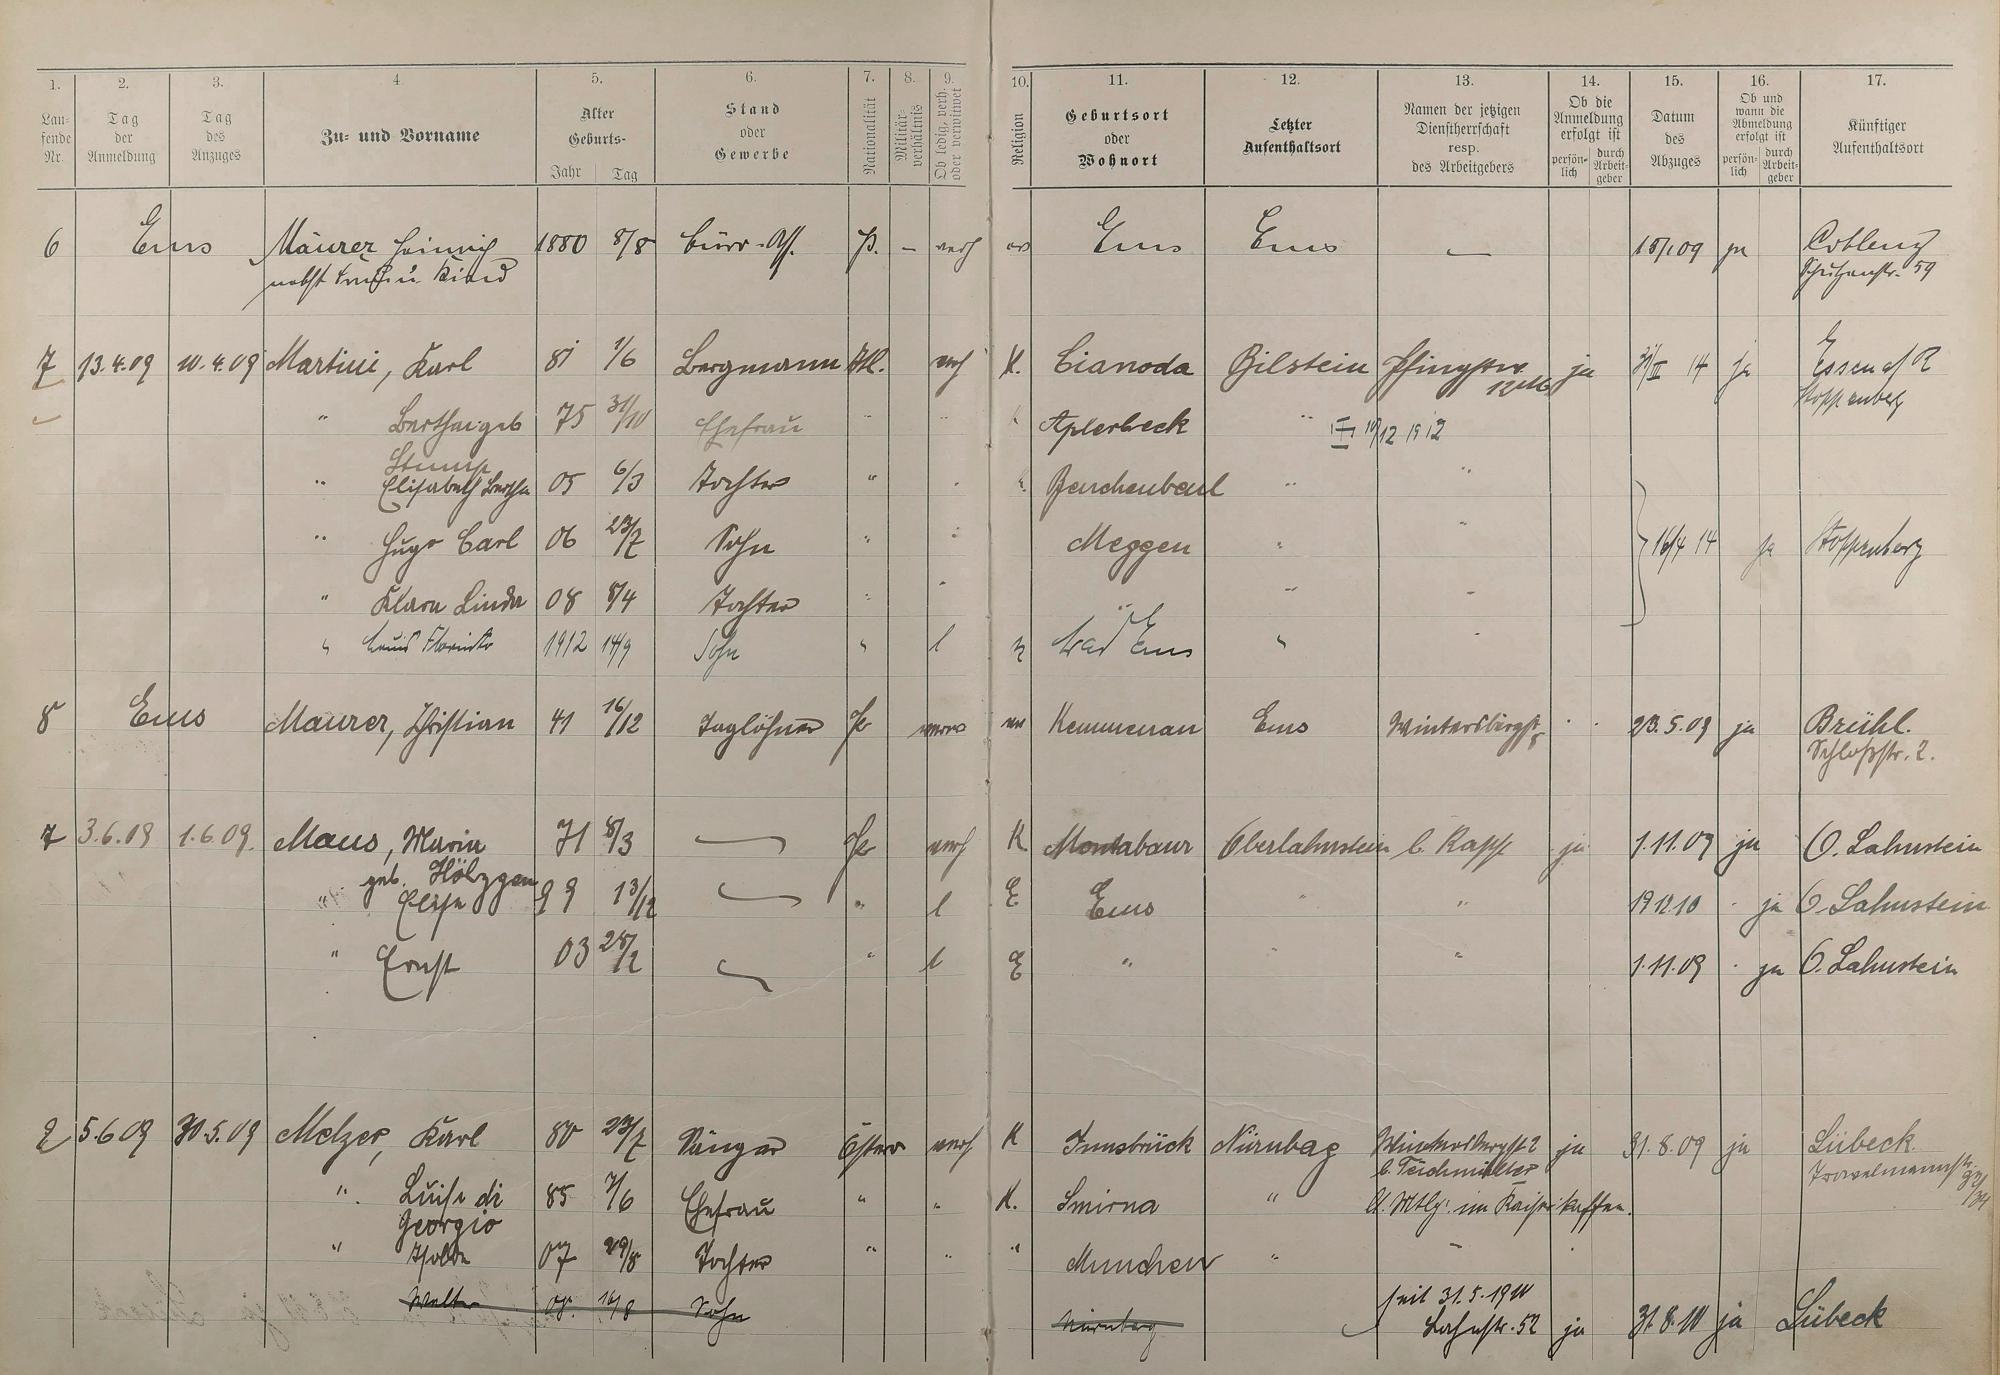 1. 2. 3. 4 5. 6. 7. 8. 9. 10. 11. 12. 13. 14. 15. 16. 17.
Laufende Nr.
Tag der Anmeldung
Tag des Anzuges
Zu- und Vorname
Alter
Geburts-
Jahr Tag
Stand oder Gewerbe
Nationalität
Militärverhältnis
Ob ledig, verh. oder verwitwet
Religion
Geburtsort oder Wohnort
Letzter Aufenthaltsort
Namen der jetzigen Dienstherrschaft resp. des Arbeitgebers
Ob die Anmeldung erfolgt ist
persönlich durch Arbeitgeber
Datum des Abzuges
Ob und wann die Abmeldung erfolgt ist
persönlich durch Arbeitgeber
Künftiger Aufenthaltsort
6 Ems Mäurer Heinrich 1880 8/8 Büro-Ass. P. – verh ev Ems Ems — 18/1 09 ja Coblenz
nebst Frau u. Kind Schützenstr. 59
7 13.4.09 10.4.09 Martini, Karl 81 1/6 Bergmann Itl. verh K. Cianoda Bilstein ja 31/III 14 ja Essen a/R
Stoppenberg
" Bertha geb 75 31/10 Ehefrau " " Aplerbeck " 10/12 1912
Stump
" Elisabeth Bertha 05 6/3 Tochter " "
" Hugo Carl 06 23/7 Sohn " " Meggen " " 16/4 14 ja Stoppenberg
" Klara Linda 08 8/4 Tochter " " " " "
" 1912 14/9 Sohn " l Bad Ems " "
8 Ems Maurer, Christian 41 16/12 Taglöhner Pr verw ev Kemmenau Ems Wintersbergstr 8 23.5.09 ja Brühl.
Schloßstr. 2.
7 3.6.09 1.6.09. Maus, Maria 71 8/3 — Pr verh K Montabaur Oberlahnstein b. Kapp ja 1.11.09 ja O. Lahnstein
geb. Hölzgen
" 99 13/12 — " l E Ems " " 19.12.10 ja O. Lahnstein
" Ernst 03 28/2 — " l E " " " 1.11.09 ja O. Lahnstein
2 5.6 09 30.5.09 Melzer, Karl 80 23/7 Sänger Österr verh K Innsbrück Nürnbag Wintersbergstr 2 ja 31.8.09 ja Lübeck.
b. Teichmüller
" Luise di 85 7/6 Ehefrau " " K. Smirna "
Georgio
" Isolde 07 29/8 Tochter " " " Munchen " –
Walter 08. 16/8 Sohn Nürnberg
seit 31.5.1910
Lahnstr. 52 ja 31.8.10 ja Lübeck